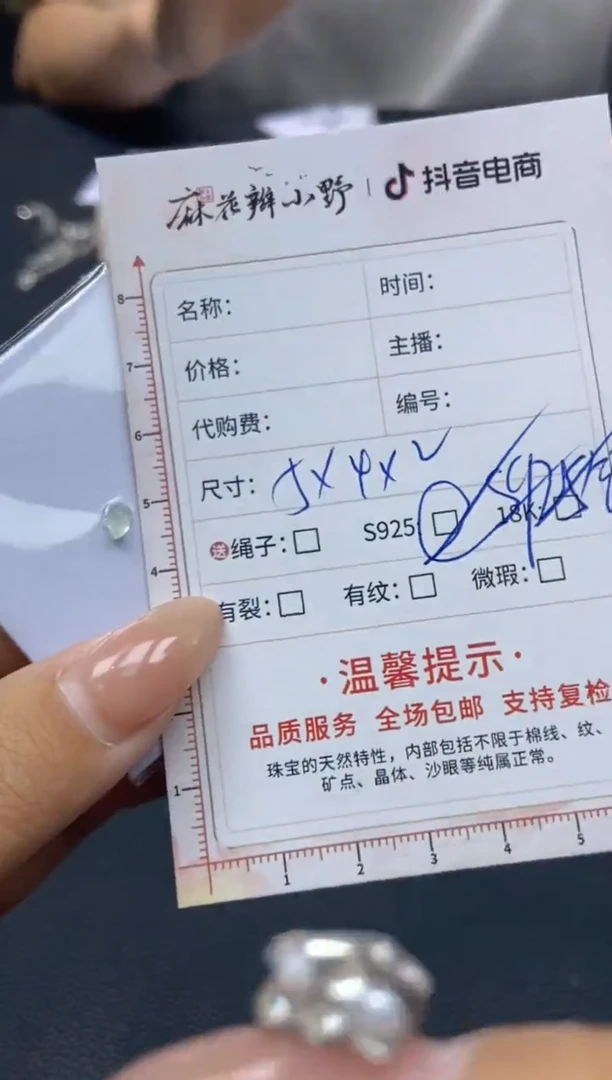 麻花辫小野 | 抖音电商
名称： 时间：
价格： 主播：
代购费： 编号：
尺寸： 5×4×2
送 绳子：□ S925 □ 18K:
有裂：□ 有纹：□ 微瑕：□
·温馨提示·
品质服务 全场包邮 支持复检
珠宝的天然特性，内部包括不限于棉线、纹、
矿点、晶体、沙眼等纯属正常。
8
7
6
5
4
1
1 2 3 4 5